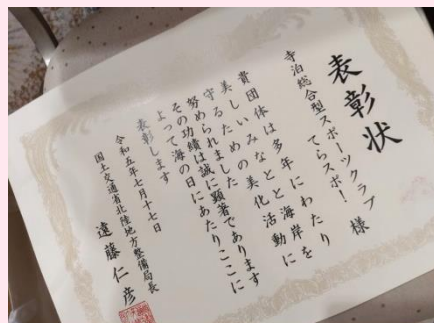 表彰状
寺泊総合型スポーツクラブ
てらスポ！ 様
貴団体は多年にわたり
美しいみなとと海岸を
守るための美化活動に
努められました
その功績は誠に顕著であります
よって海の日にあたりここに
表彰します
令和五年七月十七日
国土交通省北陸地方整備局長
遠藤仁彦